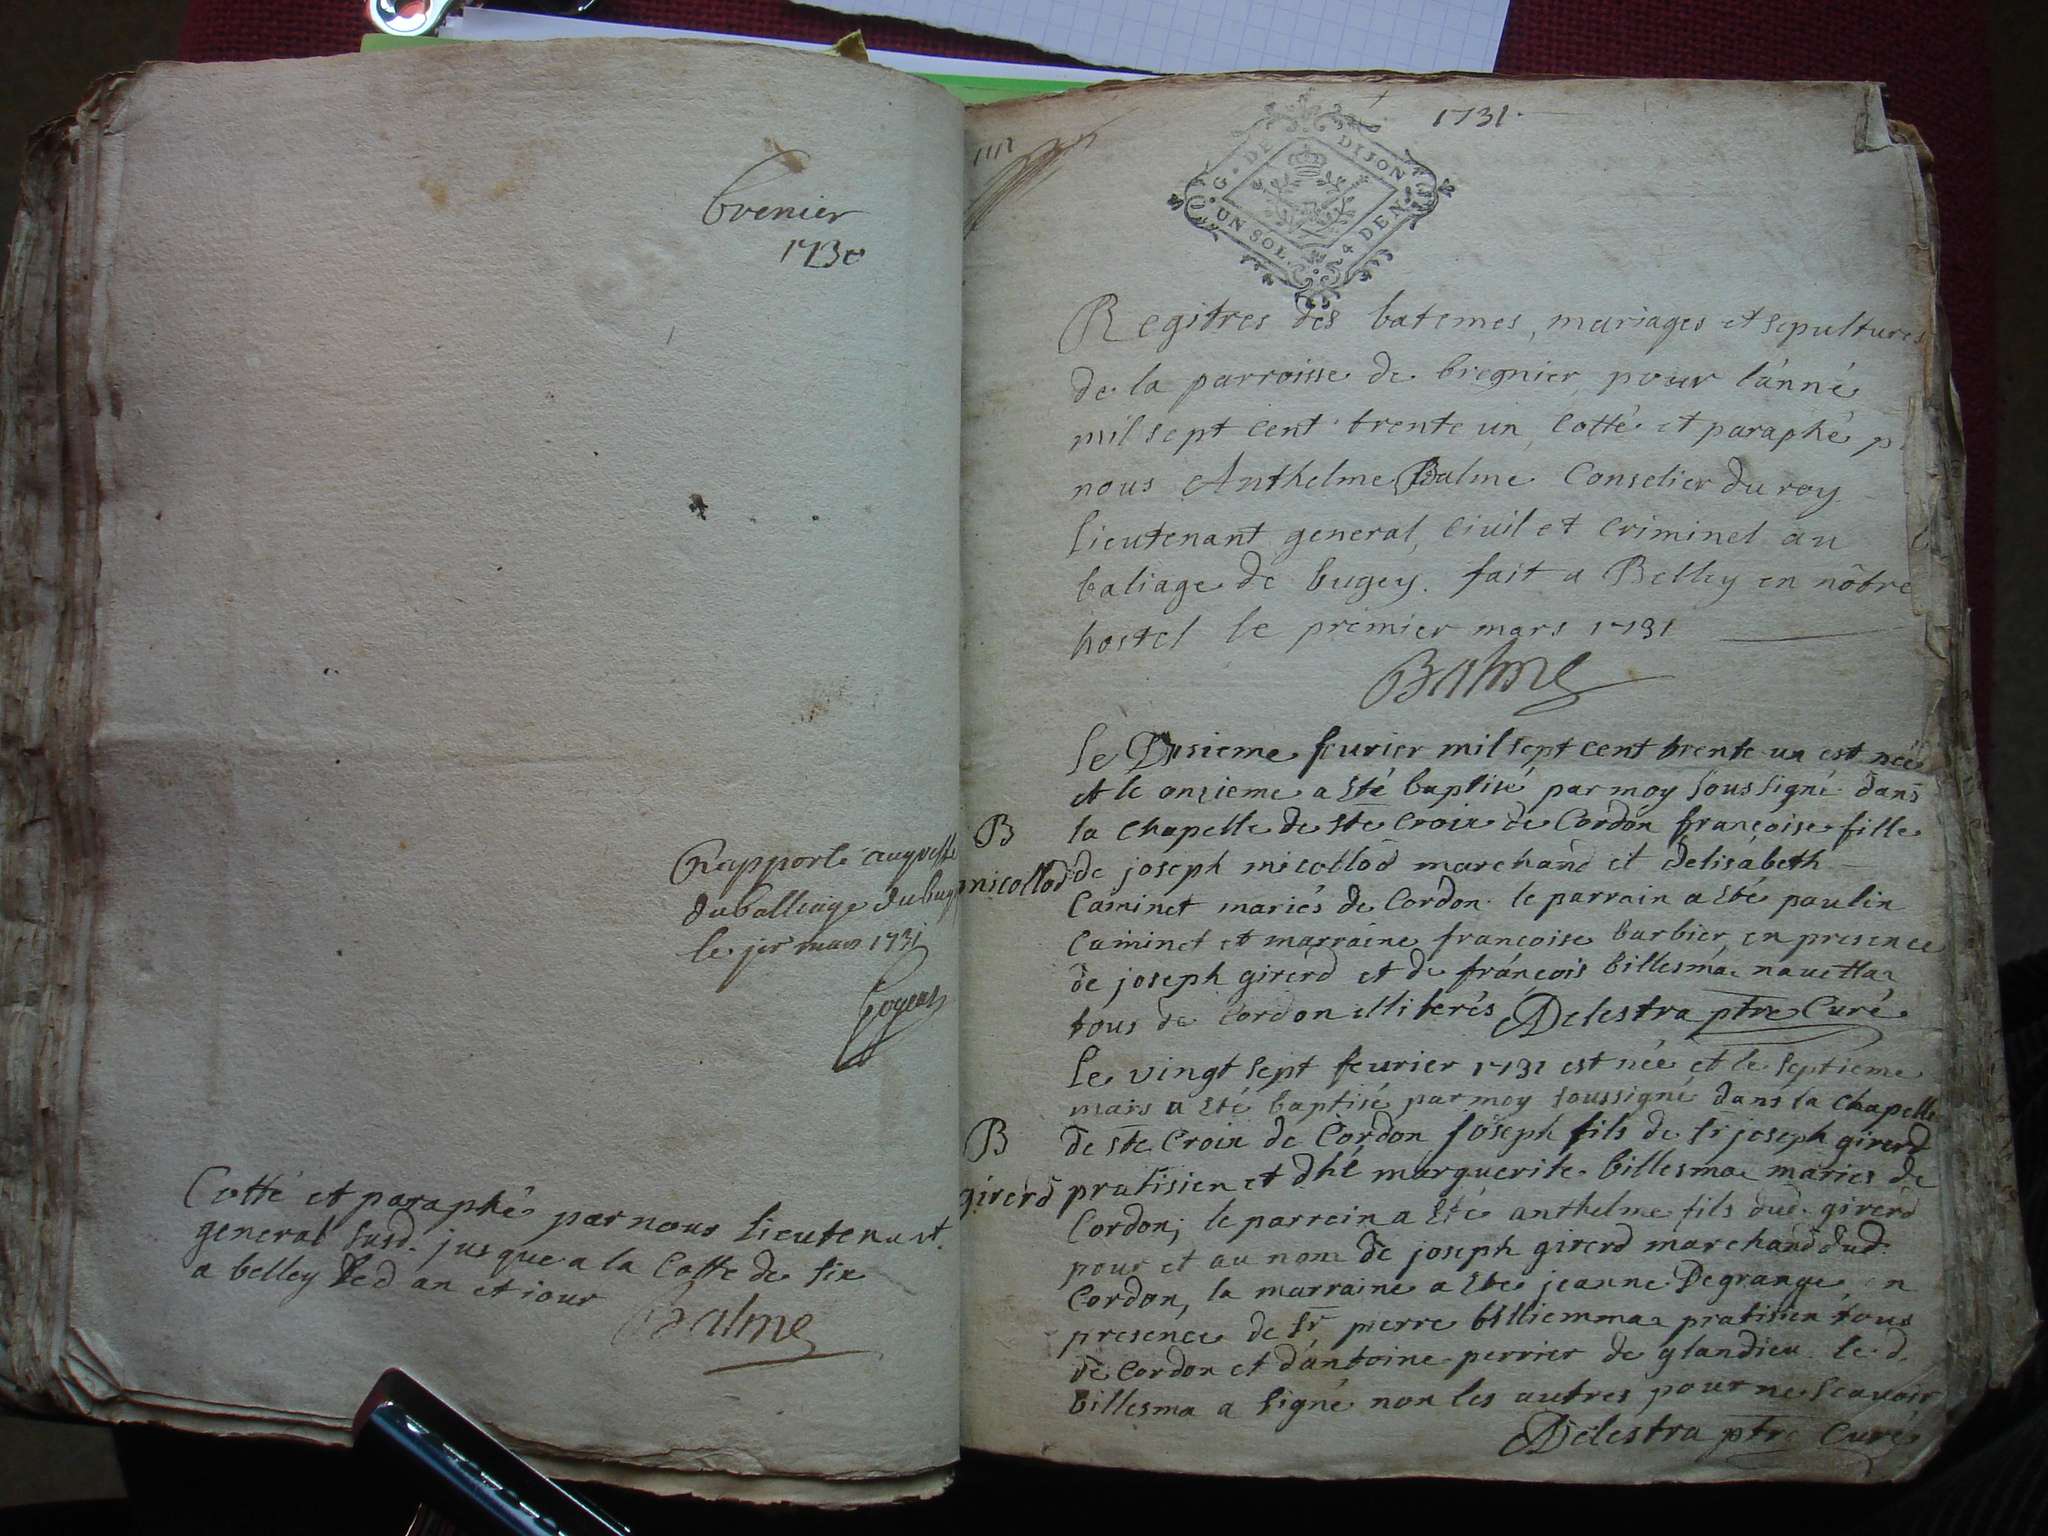 brenier
1730
Rapporté au greffe
du balliage du bugey
le jer mars 1731
Cotté et paraphé par nous lieutenant
general susd. jusque a la Cotte de six
a belley led an et iour
Balme
1731.
G. DE DIJON
UN SOL. 4 DEN.
Regitres des batemes, mariages et sepultures
de la parroisse de bregnier pour l'anné
mil sept cent trente un, Cotté et paraphé p
nous Anthelme Balme Conselier du roy
lieutenant general, civil et criminel au
baliage de bugey. fait a Belley en nôtre
hostel le premier mars 1731
Balme
le disieme feurier mil sept cent trente un est née
et le onzieme a eté baptisé par moy soussigné dans
B la chapelle de ste croix de Cordon françoise fille
micollod de joseph micollod marchand et delisabeth
Caminet mariés de Cordon. le parrain a eté paulin
Caminet et marraine françoise barbier, en presence
de joseph girerd et de françois billesmaz navetta
tous de Cordon illiterés ADelestra ptre Curé
Le vingt sept feurier 1731 est née et le septieme
mars a eté baptisé par moy soussigné dans la chapelle
B de ste Croix de Cordon joseph fils de sr joseph girerd
girerd pratisien et dlle marguerite billesmaz mariés de
Cordon; le parrein a eté anthelme fils dud. girerd
pour et au nom de joseph girerd marchand dud.
Cordon, la marraine a eté jeanne Degrange en
presence de sr pierre billiemmaz pratisien tous
de Cordon et d'antoine perrier de glandieu le d.
billesma a signé non les autres pour ne scauoir
ADelestra ptre Curé